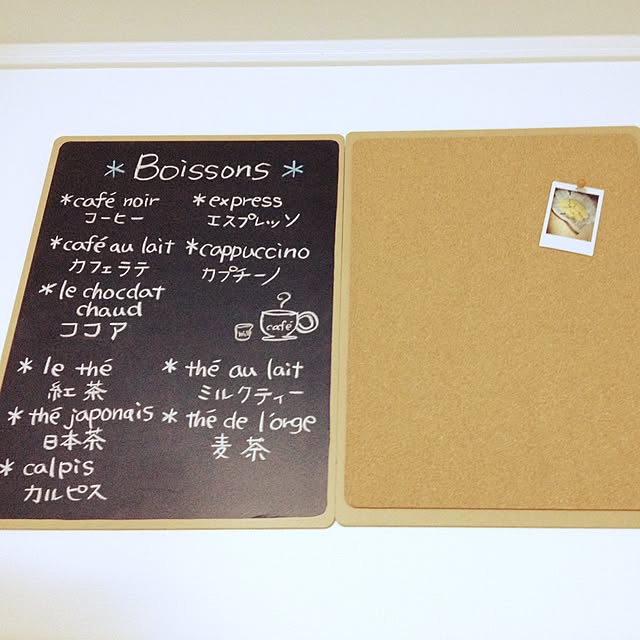 * Boissons *
* café noir
コーヒー
* express
エスプレッソ
* café au lait
カフェラテ
* cappuccino
カプチーノ
* le chocdat
chaud
ココア
café
* le thé
紅茶
* thé au lait
ミルクティー
* thé japonais
日本茶
* thé de l'orge
麦茶
* calpis
カルピス